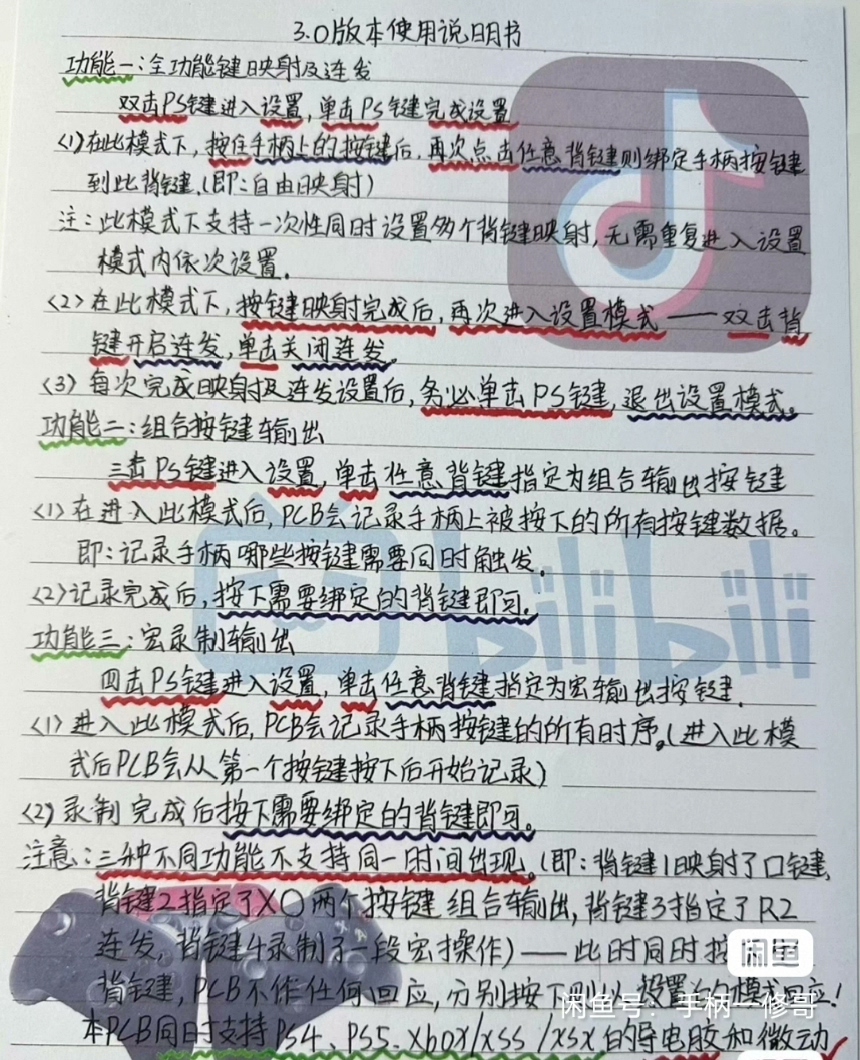 3.0版本使用说明书
功能一:全功能键映射及连发
双击PS键进入设置,单击PS键完成设置
<1>在此模式下,按住手柄上的按键后,再次点击任意背键则绑定手柄按键
到此背键.(即:自由映射)
注:此模式下支持一次性同时设置多个背键映射,无需重复进入设置
模式内依次设置.
<2>在此模式下,按键映射完成后,再次进入设置模式——双击背
键开启连发,单击关闭连发。
<3>每次完成映射及连发设置后,务必单击PS键,退出设置模式。
功能二:组合按键输出
三击PS键进入设置,单击任意背键指定为组合输出按键
<1>在进入此模式后,PCB会记录手柄上被按下的所有按键数据。
即:记录手柄哪些按键需要同时触发.
<2>记录完成后,按下需要绑定的背键即可.
bilibili
功能三:宏录制输出
四击PS键进入设置,单击任意背键指定为宏输出按键.
<1>进入此模式后,PCB会记录手柄按键的所有时序。(进入此模
式后PCB会从第一个按键按下后开始记录)
<2>录制完成后按下需要绑定的背键即可。
注意:三种不同功能不支持同一时间出现。(即:背键1映射了口键,
背键2指定了XO两个按键组合输出,背键3指定了R2
连发,背键4录制了一段宏操作)——此时同时按
闲鱼
背键,PCB不作任何回应,分别按下则以设置的模式回应!
闲鱼号:手柄一修哥
本PCB同时支持PS4、PS5.xbox/xss/xsx的导电胶和微动